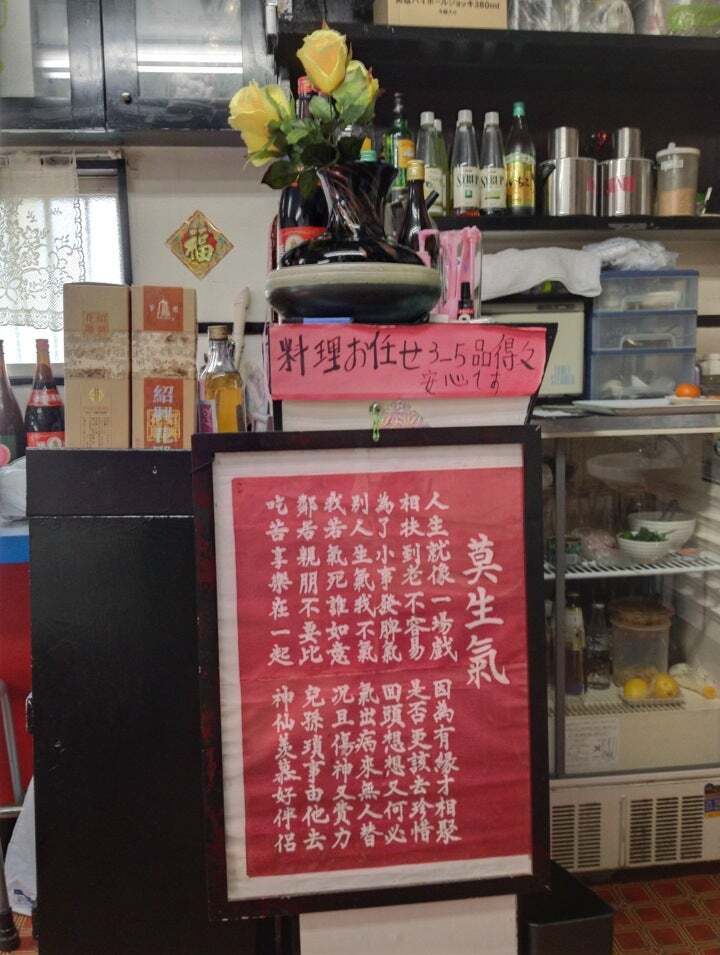 ハイボールジョッキ380ml
SYRUP
SYRUP
福
紹興花雕
料理お任せ3-5品得々
安心です
莫生氣
人生就像一場戲 因為有緣才相聚
相扶到老不容易 是否更該去珍惜
為了小事發脾氣 回頭想想又何必
別人生氣我不氣 氣出病來無人替
我若氣死誰如意 況且傷神又費力
鄰居親朋不要比 兒孫瑣事由他去
吃苦享樂在一起 神仙羨慕好伴侶